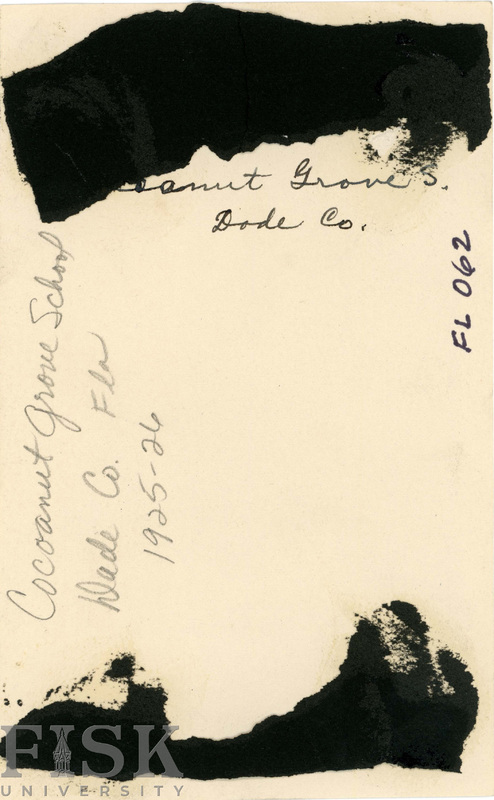 Cocoanut Grove S.
Dade Co.
FL 062
Cocoanut Grove School
Dade Co. Fla
1925-26
FISK
UNIVERSITY